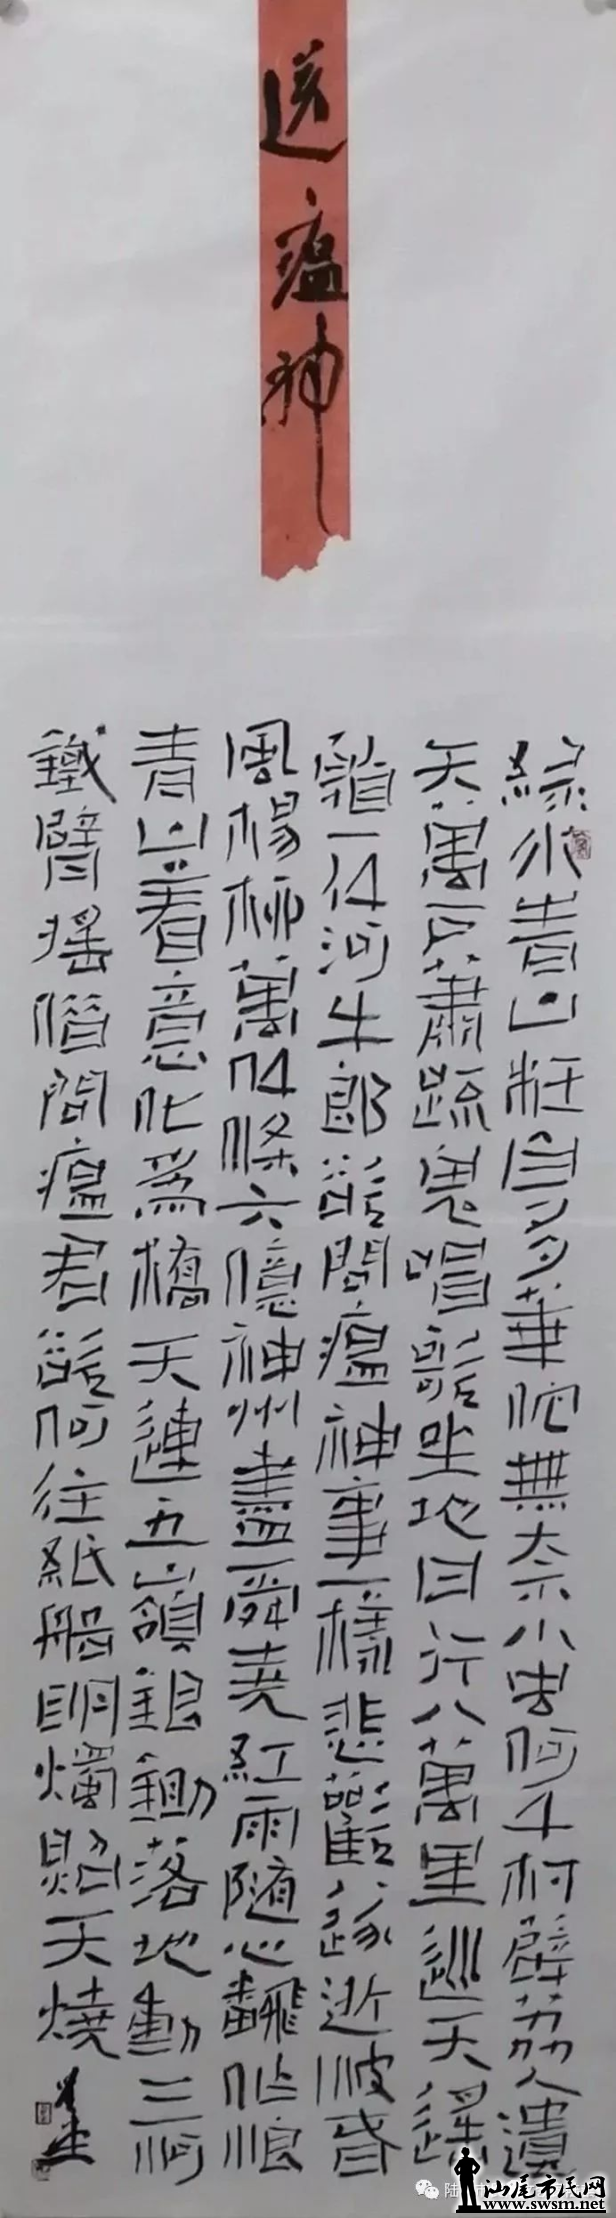 送瘟神
綠水青山枉自多華佗無奈小虫何千村薜荔人遺
矢萬戶蕭疏鬼唱歌坐地日行八萬里巡天遙
看一千河牛郎欲問瘟神事一樣悲歡逐逝波春
風楊柳萬千條六億神州盡舜堯紅雨隨心翻作浪
青山着意化爲橋天連五嶺銀鋤落地動三河
鐵臂搖借問瘟君欲何往紙船明燭照天燒
汕尾市民网
www.swsm.net